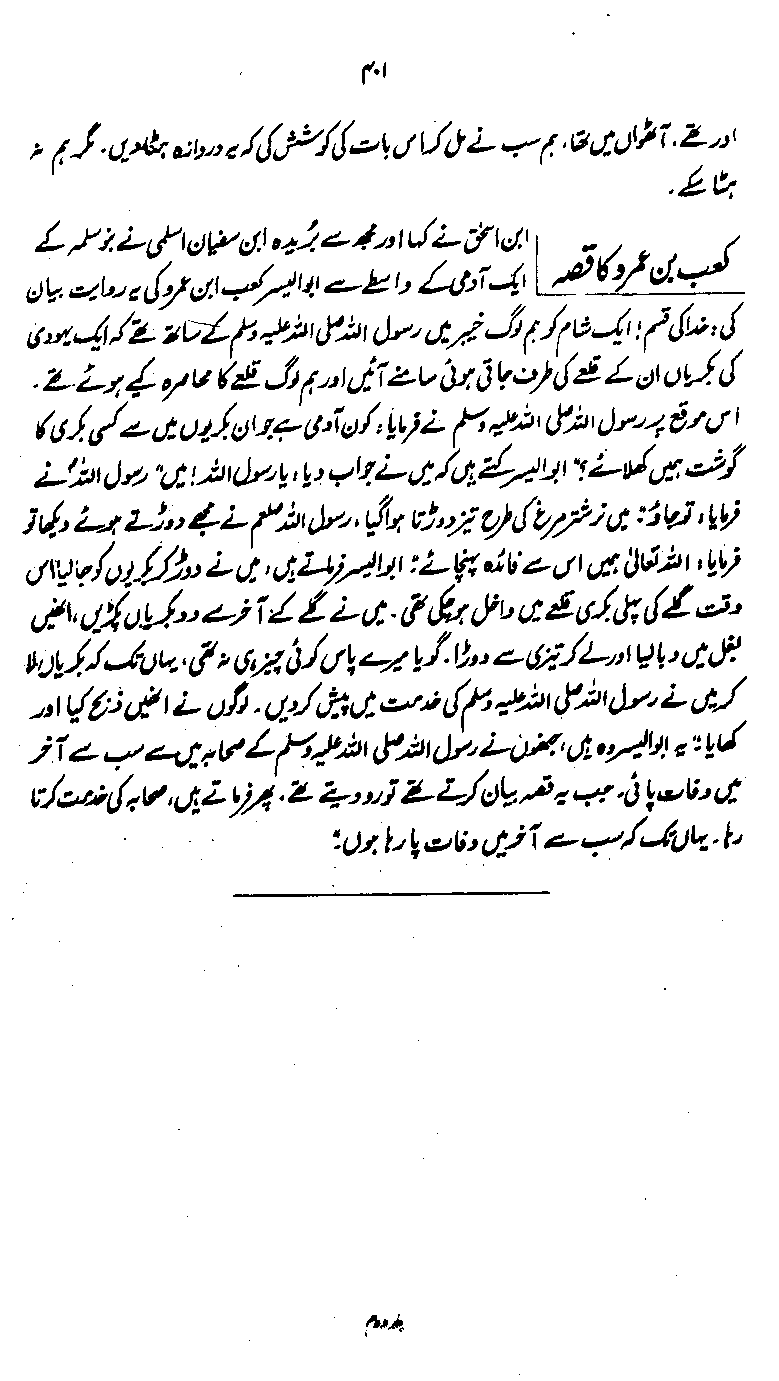 ۴۰۱
اور تھے۔ آٹھواں میں تھا، ہم سب نے مل کر اس بات کی کوشش کی کہ یہ دروازہ ہٹا دیں۔ مگر ہم نہ
ہٹا سکے۔
کعب بن عمرو کا قصہ
ابن اسحٰق نے کہا اور مجھ سے بُریدہ ابن سفیان اسلمی نے بنو سلمہ کے
ایک آدمی کے واسطے سے ابوالیسر کعب ابن عمرو کی یہ روایت بیان
کی: خدا کی قسم! ایک شام کو ہم لوگ خیبر میں رسول اللہ صلی اللہ علیہ وسلم کے ساتھ تھے کہ ایک یہودی
کی بکریاں ان کے قلعے کی طرف جاتی ہوئی سامنے آئیں اور ہم لوگ قلعے کا محاصرہ کیے ہوئے تھے۔
اس موقع پر رسول اللہ صلی اللہ علیہ وسلم نے فرمایا: کون آدمی ہے جو ان بکریوں میں سے کسی بکری کا
گوشت ہمیں کھلائے؟" ابوالیسر کہتے ہیں کہ میں نے جواب دیا: یا رسول اللہ! میں" رسول اللہؐ نے
فرمایا: تو جاؤ": میں نر شتر مرغ کی طرح تیز دوڑتا ہوا گیا، رسول اللہ صلعم نے مجھے دوڑتے ہوئے دیکھا تو
فرمایا: اللہ تعالیٰ ہمیں اس سے فائدہ پہنچائے": ابوالیسر فرماتے ہیں: میں نے دوڑ کر بکریوں کو جا لیا اس
وقت گلے کی پہلی بکری قلعے میں داخل ہو چکی تھی۔ میں نے گلے کے آخر سے دو بکریاں پکڑیں، انھیں
بغل میں دبا لیا اور لے کر تیزی سے دوڑا۔ گویا میرے پاس کوئی چیز ہی نہ تھی، یہاں تک کہ بکریاں لا
کر میں نے رسول اللہ صلی اللہ علیہ وسلم کی خدمت میں پیش کر دیں۔ لوگوں نے انھیں ذبح کیا اور
کھایا": یہ ابوالیسر وہ ہیں، جنھوں نے رسول اللہ صلی اللہ علیہ وسلم کے صحابہ میں سے سب سے آخر
میں وفات پائی۔ جب یہ قصہ بیان کرتے تھے تو رو دیتے تھے۔ پھر فرماتے ہیں، صحابہ کی خدمت کرتا
رہا۔ یہاں تک کہ سب سے آخر میں وفات پا رہا ہوں":
جلد دوم